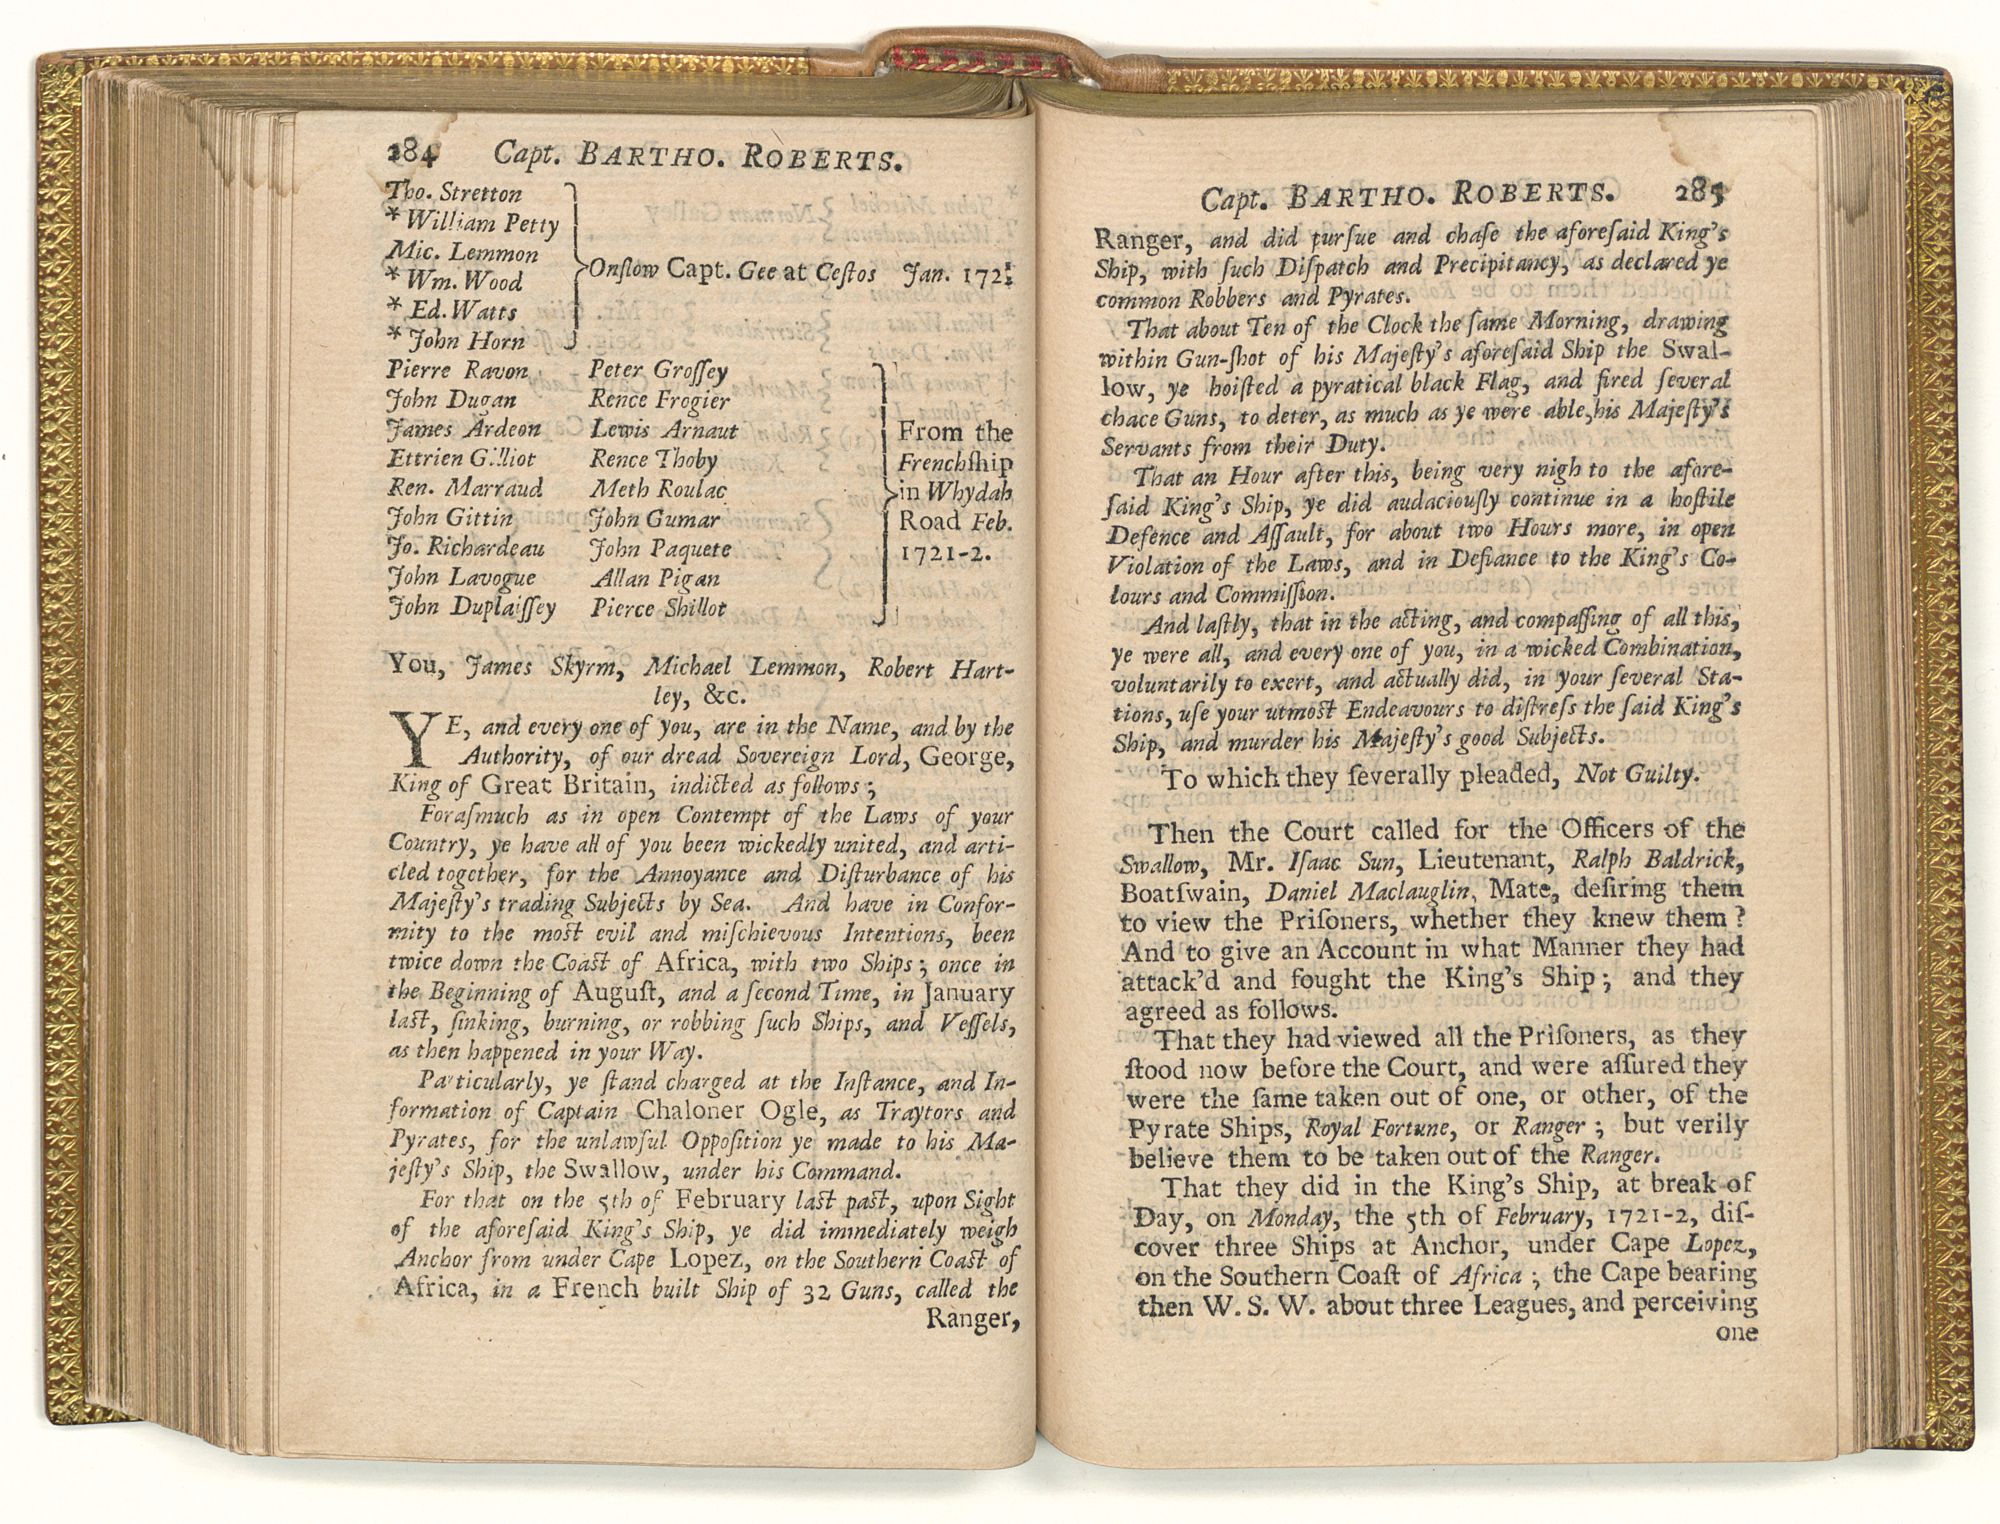 284 Capt. BARTHO. ROBERTS.
Tho. Stretton
* William Petty
Mic. Lemmon
* Wm. Wood
* Ed. Watts
* John Horn
Onſlow Capt. Gee at Ceſtos Jan. 172
Pierre Ravon Peter Groſſey
John Dugan Rence Frogier
James Ardeon Lewis Arnaut
Ettrien Gilliot Rence Thoby
Ren. Marraud Meth Roulac
John Gittin John Gumar
Jo. Richardeau John Paquete
John Lavogue Allan Pigan
John Duplaiſſey Pierce Shillot
From the
Frenchſhip
in Whydah
Road Feb.
1721-2.
You, James Skyrm, Michael Lemmon, Robert Hart-
ley, &c.
YE, and every one of you, are in the Name, and by the
Authority, of our dread Sovereign Lord, George,
King of Great Britain, indicted as follows;
Foraſmuch as in open Contempt of the Laws of your
Country, ye have all of you been wickedly united, and arti-
cled together, for the Annoyance and Diſturbance of his
Majeſty's trading Subjects by Sea. And have in Confor-
mity to the most evil and miſchievous Intentions, been
twice down the Coast of Africa, with two Ships; once in
the Beginning of Auguſt, and a ſecond Time, in January
last, ſinking, burning, or robbing ſuch Ships, and Veſſels,
as then happened in your Way.
Particularly, ye ſtand charged at the Inſtance, and In-
formation of Captain Chaloner Ogle, as Traytors and
Pyrates, for the unlawful Oppoſition ye made to his Ma-
jeſty's Ship, the Swallow, under his Command.
For that on the 5th of February last past, upon Sight
of the aforeſaid King's Ship, ye did immediately weigh
Anchor from under Cape Lopez, on the Southern Coast of
Africa, in a French built Ship of 32 Guns, called the
Ranger,
Capt. BARTHO. ROBERTS. 285
Ranger, and did purſue and chaſe the aforeſaid King's
Ship, with ſuch Diſpatch and Precipitancy, as declared ye
common Robbers and Pyrates.
That about Ten of the Clock the ſame Morning, drawing
within Gun-ſhot of his Majeſty's aforeſaid Ship the Swal-
low, ye hoiſted a pyratical black Flag, and fired ſeveral
chace Guns, to deter, as much as ye were able, his Majeſty's
Servants from their Duty.
That an Hour after this, being very nigh to the afore-
ſaid King's Ship, ye did audaciouſly continue in a hoſtile
Defence and Aſſault, for about two Hours more, in open
Violation of the Laws, and in Defiance to the King's Co-
lours and Commiſſion.
And laſtly, that in the acting, and compaſſing of all this,
ye were all, and every one of you, in a wicked Combination,
voluntarily to exert, and actually did, in your ſeveral Sta-
tions, uſe your utmost Endeavours to diſtreſs the ſaid King's
Ship, and murder his Majeſty's good Subjects.
To which they ſeverally pleaded, Not Guilty.
Then the Court called for the Officers of the
Swallow, Mr. Iſaac Sun, Lieutenant, Ralph Baldrick,
Boatſwain, Daniel Maclauglin, Mate, deſiring them
to view the Priſoners, whether they knew them?
And to give an Account in what Manner they had
attack'd and fought the King's Ship; and they
agreed as follows.
That they had viewed all the Priſoners, as they
ſtood now before the Court, and were aſſured they
were the ſame taken out of one, or other, of the
Pyrate Ships, Royal Fortune, or Ranger; but verily
believe them to be taken out of the Ranger.
That they did in the King's Ship, at break of
Day, on Monday, the 5th of February, 1721-2, diſ-
cover three Ships at Anchor, under Cape Lopez,
on the Southern Coaſt of Africa; the Cape bearing
then W. S. W. about three Leagues, and perceiving
one